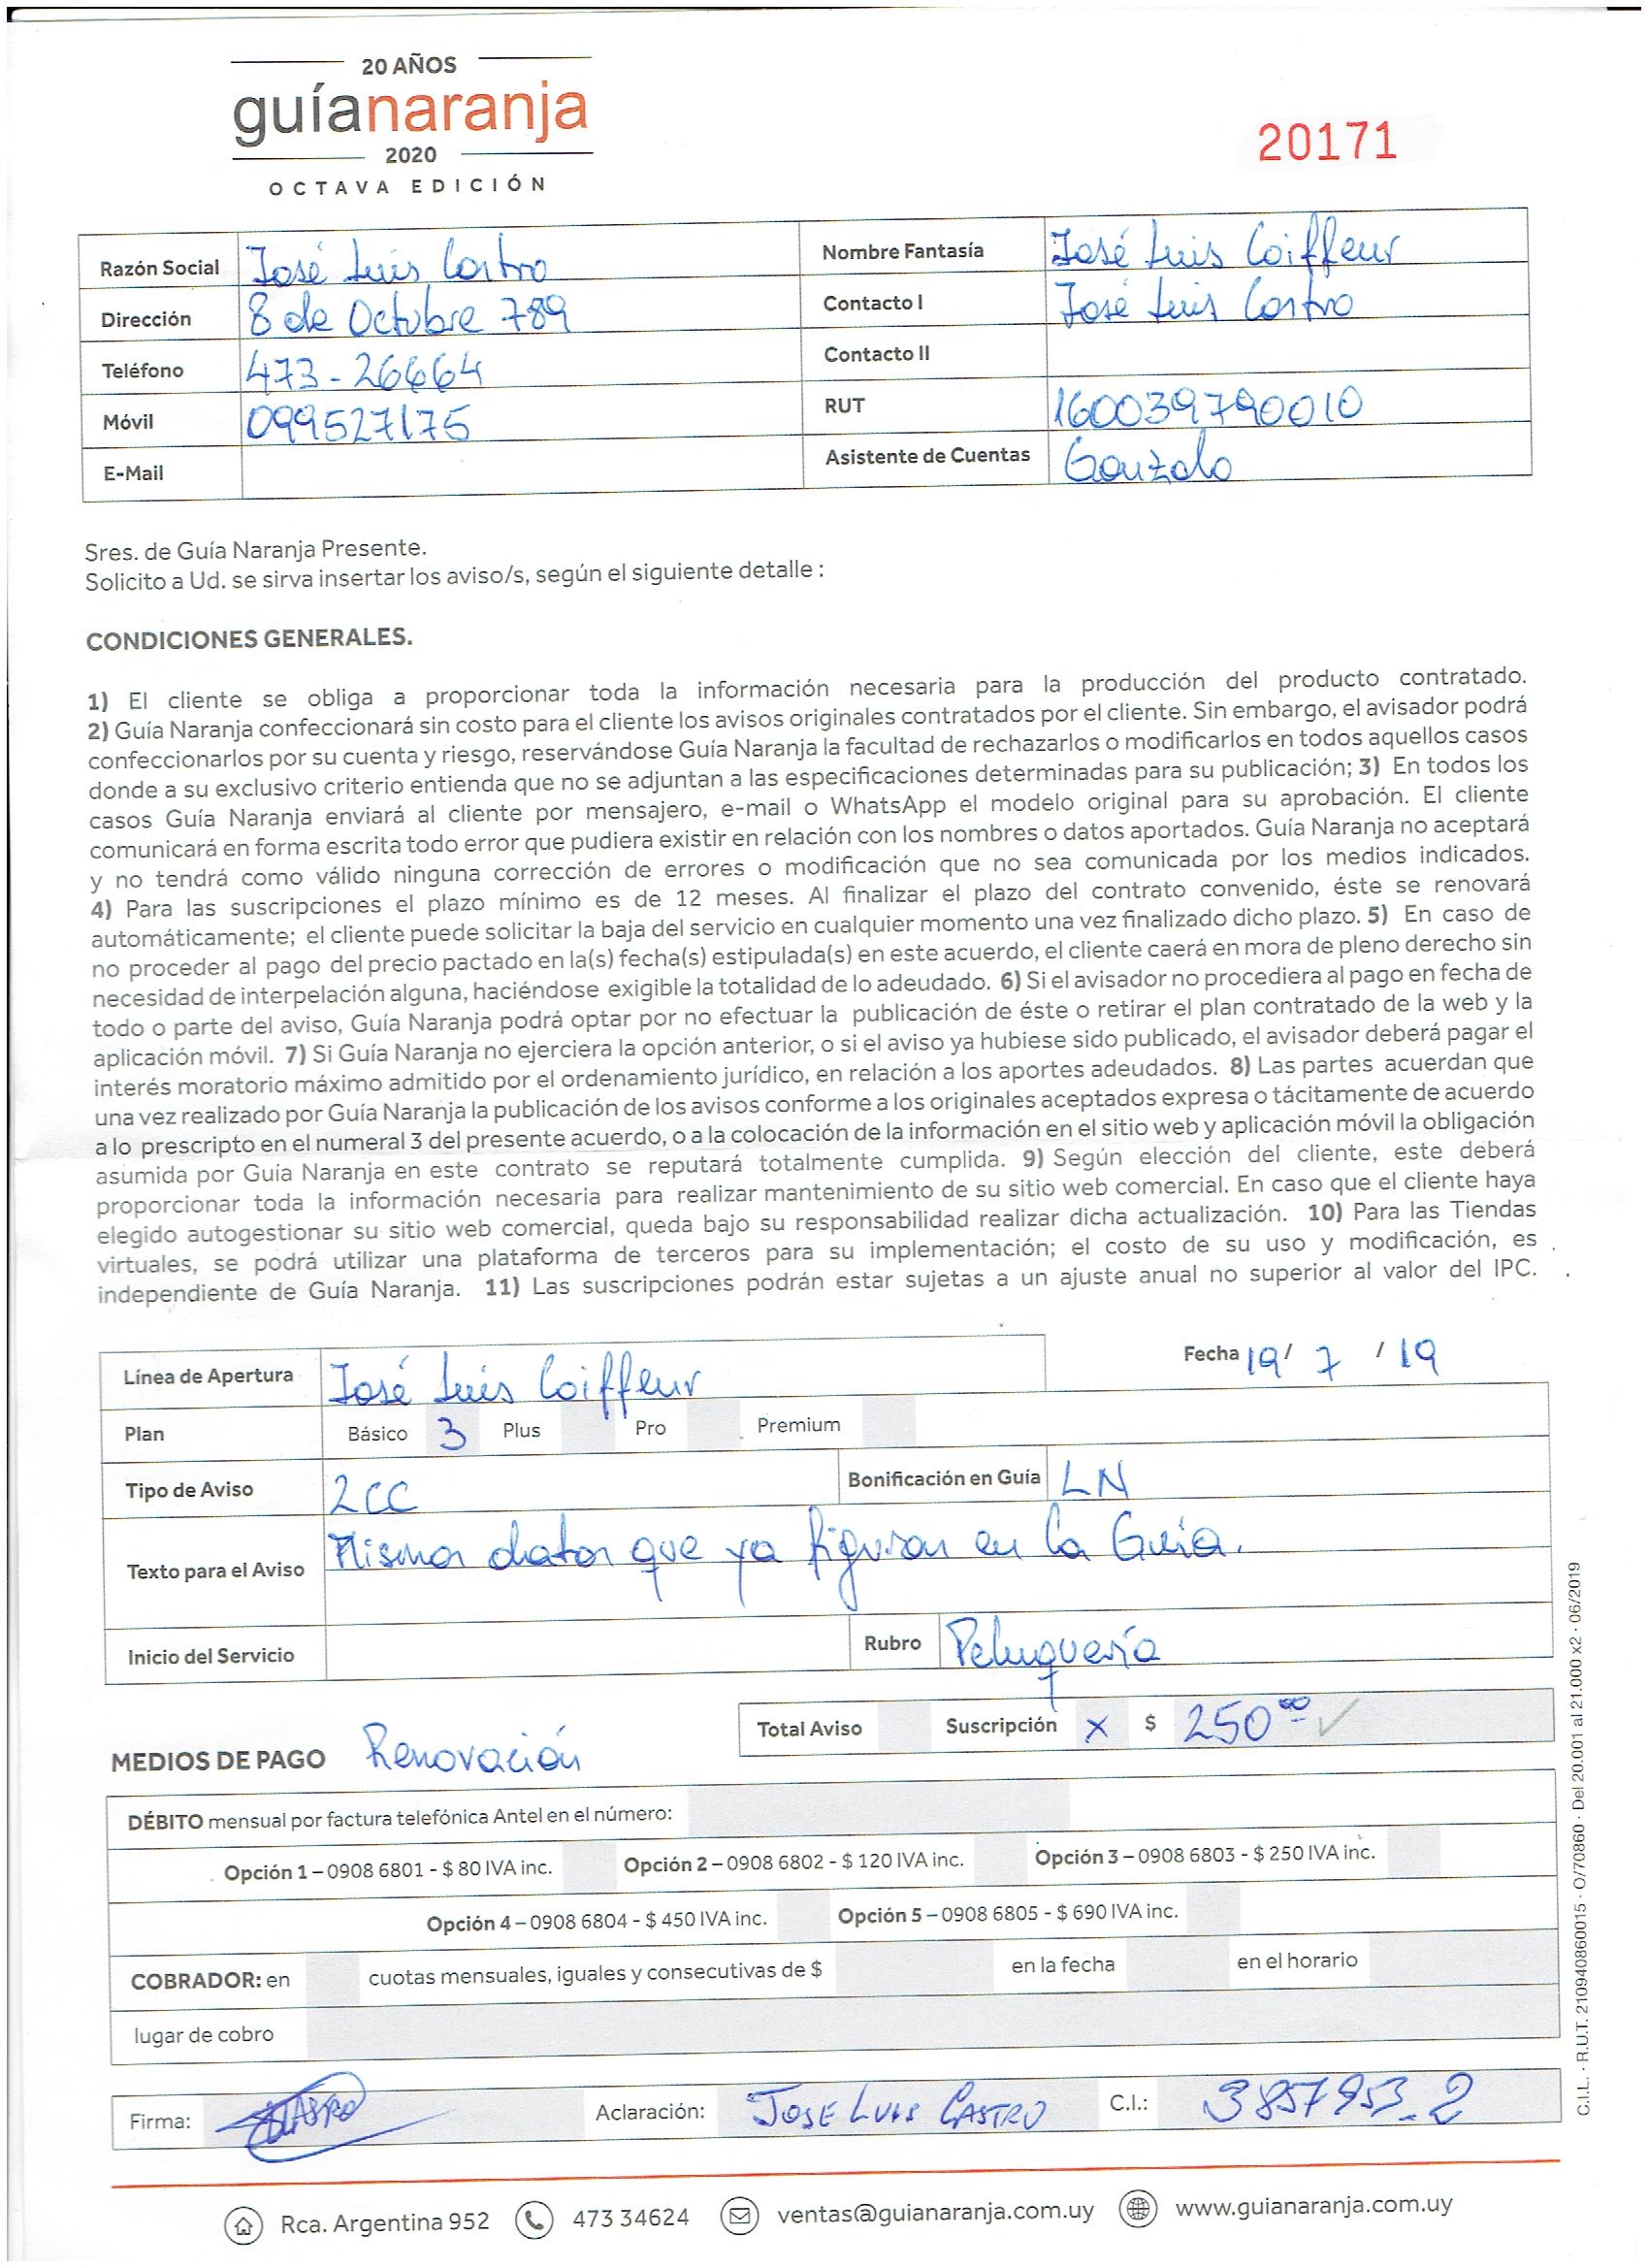 20 AÑOS
guíanaranja
2020
OCTAVA EDICIÓN
20171
Razón Social José Luis Castro Nombre Fantasía José Luis Coiffeur
Dirección 8 de Octubre 789 Contacto I José Luis Castro
Teléfono 473-26664 Contacto II
Móvil 099527175 RUT 160039790010
E-Mail Asistente de Cuentas Gonzalo
Sres. de Guía Naranja Presente.
Solicito a Ud. se sirva insertar los aviso/s, según el siguiente detalle :
CONDICIONES GENERALES.
1) El cliente se obliga a proporcionar toda la información necesaria para la producción del producto contratado.
2) Guía Naranja confeccionará sin costo para el cliente los avisos originales contratados por el cliente. Sin embargo, el avisador podrá
confeccionarlos por su cuenta y riesgo, reservándose Guía Naranja la facultad de rechazarlos o modificarlos en todos aquellos casos
donde a su exclusivo criterio entienda que no se adjuntan a las especificaciones determinadas para su publicación; 3) En todos los
casos Guía Naranja enviará al cliente por mensajero, e-mail o WhatsApp el modelo original para su aprobación. El cliente
comunicará en forma escrita todo error que pudiera existir en relación con los nombres o datos aportados. Guía Naranja no aceptará
y no tendrá como válido ninguna corrección de errores o modificación que no sea comunicada por los medios indicados.
4) Para las suscripciones el plazo mínimo es de 12 meses. Al finalizar el plazo del contrato convenido, éste se renovará
automáticamente; el cliente puede solicitar la baja del servicio en cualquier momento una vez finalizado dicho plazo. 5) En caso de
no proceder al pago del precio pactado en la(s) fecha(s) estipulada(s) en este acuerdo, el cliente caerá en mora de pleno derecho sin
necesidad de interpelación alguna, haciéndose exigible la totalidad de lo adeudado. 6) Si el avisador no procediera al pago en fecha de
todo o parte del aviso, Guía Naranja podrá optar por no efectuar la publicación de éste o retirar el plan contratado de la web y la
aplicación móvil. 7) Si Guía Naranja no ejerciera la opción anterior, o si el aviso ya hubiese sido publicado, el avisador deberá pagar el
interés moratorio máximo admitido por el ordenamiento jurídico, en relación a los aportes adeudados. 8) Las partes acuerdan que
una vez realizado por Guía Naranja la publicación de los avisos conforme a los originales aceptados expresa o tácitamente de acuerdo
a lo prescripto en el numeral 3 del presente acuerdo, o a la colocación de la información en el sitio web y aplicación móvil la obligación
asumida por Guía Naranja en este contrato se reputará totalmente cumplida. 9) Según elección del cliente, este deberá
proporcionar toda la información necesaria para realizar mantenimiento de su sitio web comercial. En caso que el cliente haya
elegido autogestionar su sitio web comercial, queda bajo su responsabilidad realizar dicha actualización. 10) Para las Tiendas
virtuales, se podrá utilizar una plataforma de terceros para su implementación; el costo de su uso y modificación, es
independiente de Guía Naranja. 11) Las suscripciones podrán estar sujetas a un ajuste anual no superior al valor del IPC.
Fecha 19/ 7 / 19
Línea de Apertura José Luis Coiffeur
Plan Básico 3 Plus Pro Premium
Tipo de Aviso 2CC Bonificación en Guía LN
Texto para el Aviso Mismos datos que ya figuran en la Guía.
Inicio del Servicio Rubro Peluquería
Total Aviso Suscripción x $ 250 00 ✓
MEDIOS DE PAGO Renovación
DÉBITO mensual por factura telefónica Antel en el número:
Opción 1 – 0908 6801 - $ 80 IVA inc. Opción 2 – 0908 6802 - $ 120 IVA inc. Opción 3 – 0908 6803 - $ 250 IVA inc.
Opción 4 – 0908 6804 - $ 450 IVA inc. Opción 5 – 0908 6805 - $ 690 IVA inc.
COBRADOR: en cuotas mensuales, iguales y consecutivas de $ en la fecha en el horario
lugar de cobro
Firma: Castro Aclaración: JOSE LUIS CASTRO C.I.: 3857953-2
Rca. Argentina 952 473 34624 ventas@guianaranja.com.uy www.guianaranja.com.uy
C.I.L. · R.U.T. 210940860015 · O/70860 · Del 20.001 al 21.000 x2 · 06/2019